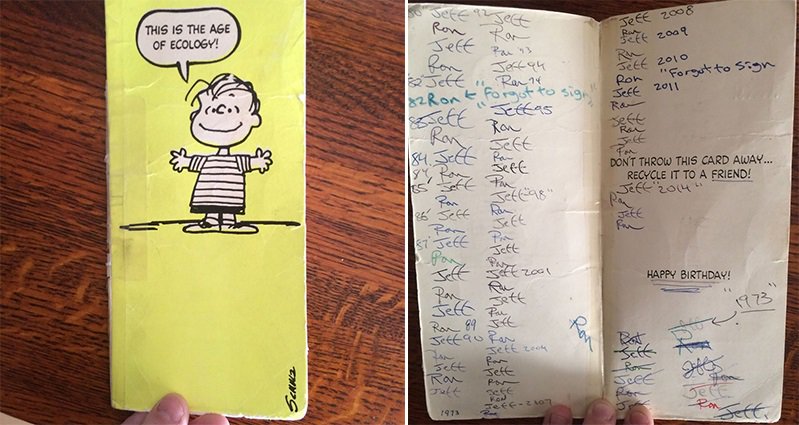 THIS IS THE AGE
OF ECOLOGY!
SCHULZ
Jeff 92
Ron
Jeff
Ron
82 Jeff
82 Ron "Forgot to sign"
83 Jeff
Ron
84 Jeff
84 Ron
85 Jeff
Ron
86 Jeff
Ron
87 Jeff
Ron
Jeff
Ron
Jeff
Ron 89
Jeff 90
Ron
Jeff
Ron
Jeff
1973
Jeff
Ron
Ron 93
Jeff 94
Ron 94
Jeff 95
Ron
Jeff
Ron
Jeff
Ron
Jeff "98"
Ron
Jeff
Ron
Jeff
Ron
Jeff 2001
Ron
Jeff
Ron
Jeff
Ron
Jeff 2004
Ron
Jeff
Ron
Jeff
RON
Jeff - 2007
Ron
Ron
Jeff 2008
Ron
Jeff 2009
Ron
Jeff 2010
Ron "Forgot to sign
Jeff 2011
Ron
Jeff
Ron
Jeff
Ron
DON'T THROW THIS CARD AWAY...
RECYCLE IT TO A FRIEND!
Jeff "2014"
Ron
Jeff
Ron
HAPPY BIRTHDAY!
"1973"
Ron
Jeff
Ron
Jeff
Ron
Jeff
Jeff
Ron
Jeff
Ron
Jeff
Ron
Jeff